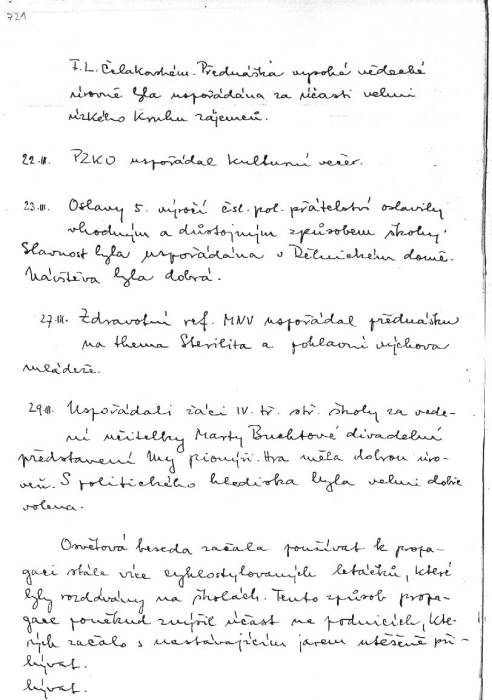 721
F. L. Čelakovském. Přednáška vysoké vědecké
úrovně byla uspořádána za účasti velmi
úzkého kruhu zájemců.
22.III. PZKO uspořádal kulturní večer.
23.III. Oslavy 5. výročí čsl. pol. přátelství oslavily
vhodným a důstojným způsobem školy.
Slavnost byla uspořádána v Dělnickém domě.
Návštěva byla dobrá.
27.III. Zdravotní ref. MNV uspořádal přednášku
na thema Sterilita a pohlavní výchova
mládeže.
29.III. Uspořádali žáci IV. tř. stř. školy za vede-
ní učitelky Marty Buchtové divadelní
představení My pionýři. Hra měla dobrou úro-
veň. S politického hlediska byla velmi dobře
volena.
Osvětová beseda začala používat k propa-
gaci stále více cyklostylovaných letáčků, které
byly rozdávány na školách. Tento způsob propa-
gace poněkud zvýšil účast na podnicích, kte-
rých začalo s nastávajícím jarem utěšeně při-
bývat.
bývat.